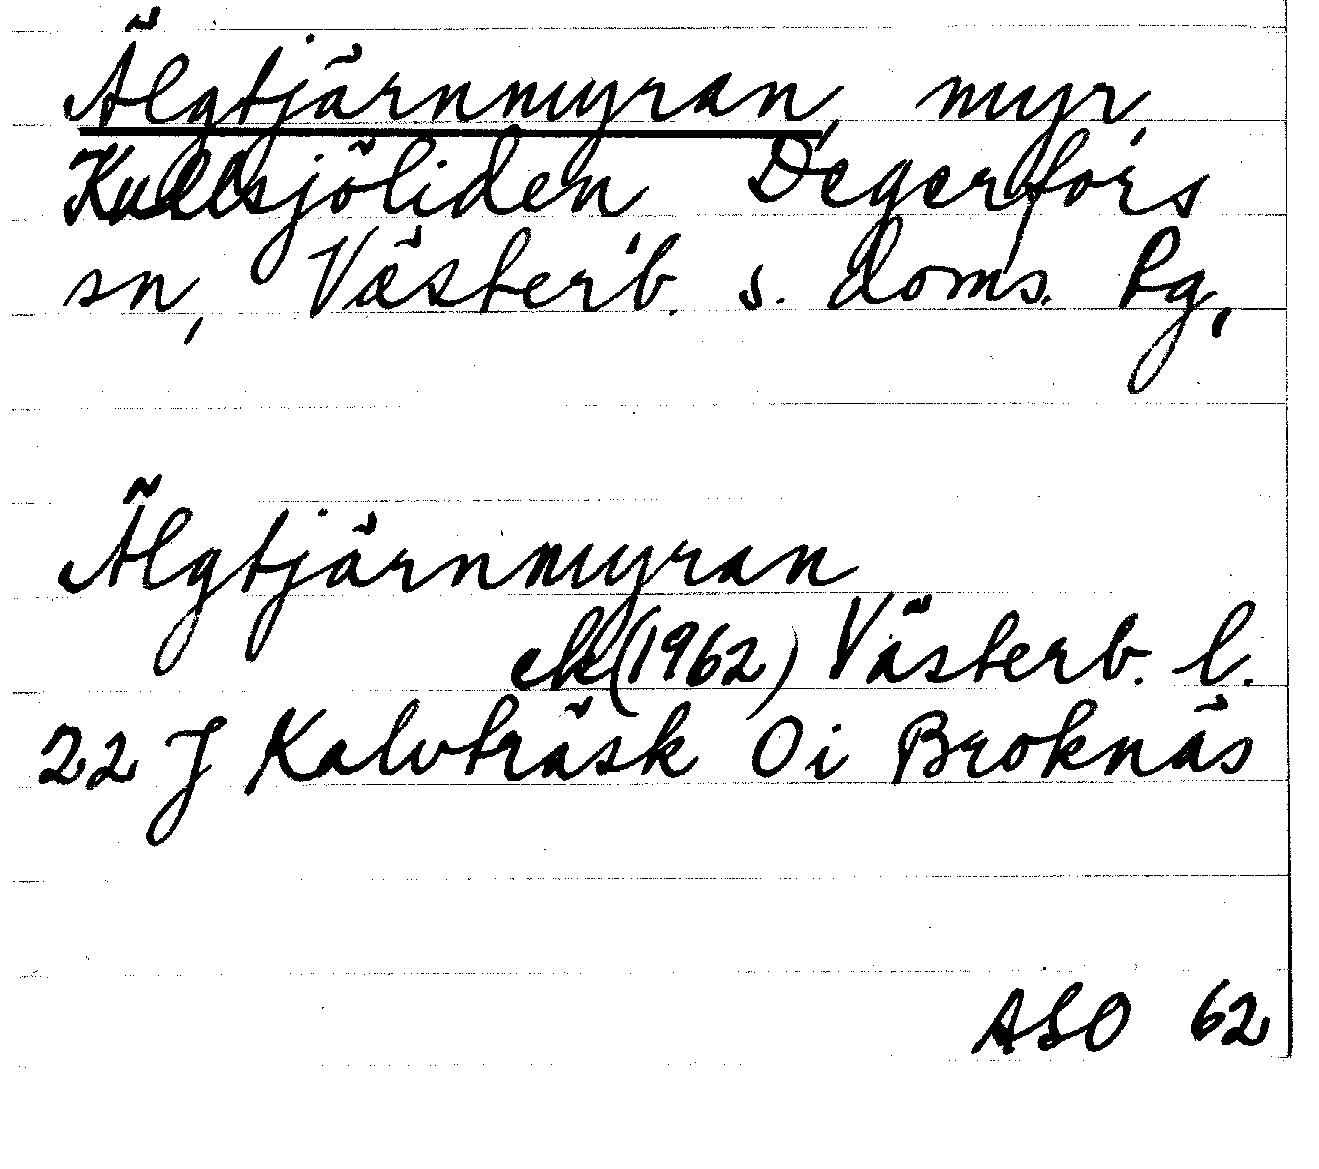 Älgtjärnmyran, myr,
Kullsjöliden Degerfors
sn, Västerb. s. doms. tg,
Älgtjärnmyran
ek (1962) Västerb. l.
22 J Kalvträsk Oi Broknäs
ASO 62